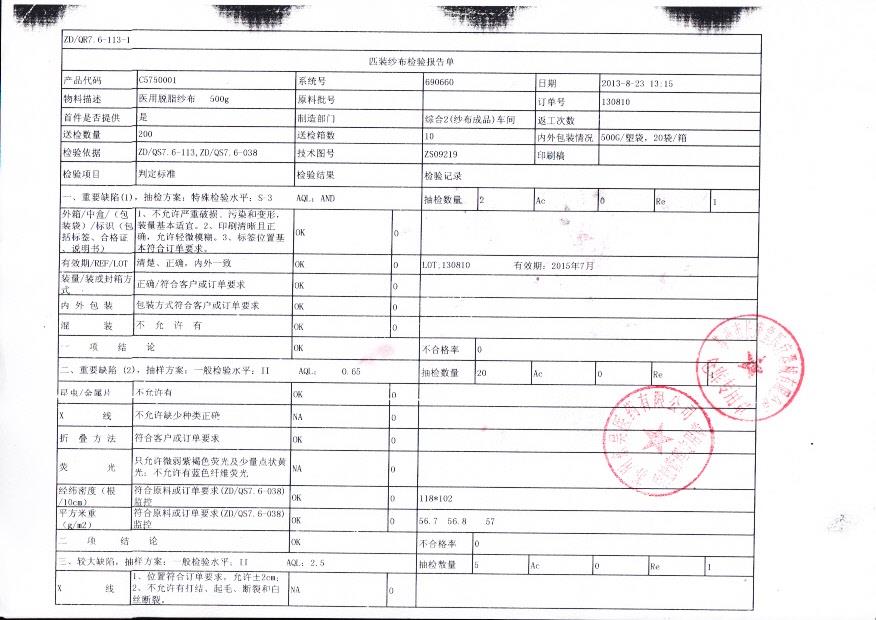 ZD/QR7.6-113-1
匹装纱布检验报告单
产品代码 C5750001 系统号 690660 日期 2013-8-23 13:15
物料描述 医用脱脂纱布 500g 原料批号 订单号 130810
首件是否提供 是 制造部门 综合2(纱布成品)车间 返工次数
送检数量 200 送检箱数 10 内外包装情况 500G/塑袋, 20袋/箱
检验依据 ZD/QS7.6-113,ZD/QS7.6-038 技术图号 ZS09219 印刷稿
检验项目 判定标准 检验结果 检验记录
一、重要缺陷(1), 抽检方案: 特殊检验水平: S-3 AQL: AND 抽检数量 2 Ac 0 Re 1
外箱/中盒/（包
装袋）/标识（包
括标签、合格证
、说明书）
1、不允许严重破损、污染和变形,
装量基本适宜。2、印刷清晰且正
确, 允许轻微模糊。3、标签位置基
本符合订单要求。
OK 0
有效期/REF/LOT 清楚、正确, 内外一致 OK 0 LOT.130810 有效期: 2015年7月
装量/装或封箱方
式
正确/符合客户或订单要求 OK 0
内外包装 包装方式符合客户或订单要求 OK 0
混 装 不允许有 OK 0
一 项 结 论 OK 不合格率 0
二、重要缺陷 (2), 抽样方案: 一般检验水平: II AQL: 0.65 抽检数量 20 Ac 0 Re
昆虫/金属片 不允许有 OK 0
X 线 不允许缺少种类正确 NA 0
折叠方法 符合客户或订单要求 OK 0
荧 光
只允许微弱紫褐色荧光及少量点状黄
光; 不允许有蓝色纤维荧光
NA 0
经纬密度（根
/10cm）
符合原料或订单要求(ZD/QS7.6-038)
监控
OK 0 118*102
平方米重
（g/m2）
符合原料或订单要求(ZD/QS7.6-038)
监控
OK 0 56.7 56.8 57
二 项 结 论 OK 不合格率 0
三、较大缺陷, 抽样方案: 一般检验水平: II AQL: 2.5 抽检数量 5 Ac 0 Re 1
X 线
1、位置符合订单要求, 允许±2cm;
2、不允许有打结、起毛、断裂和白
丝断裂。
NA 0